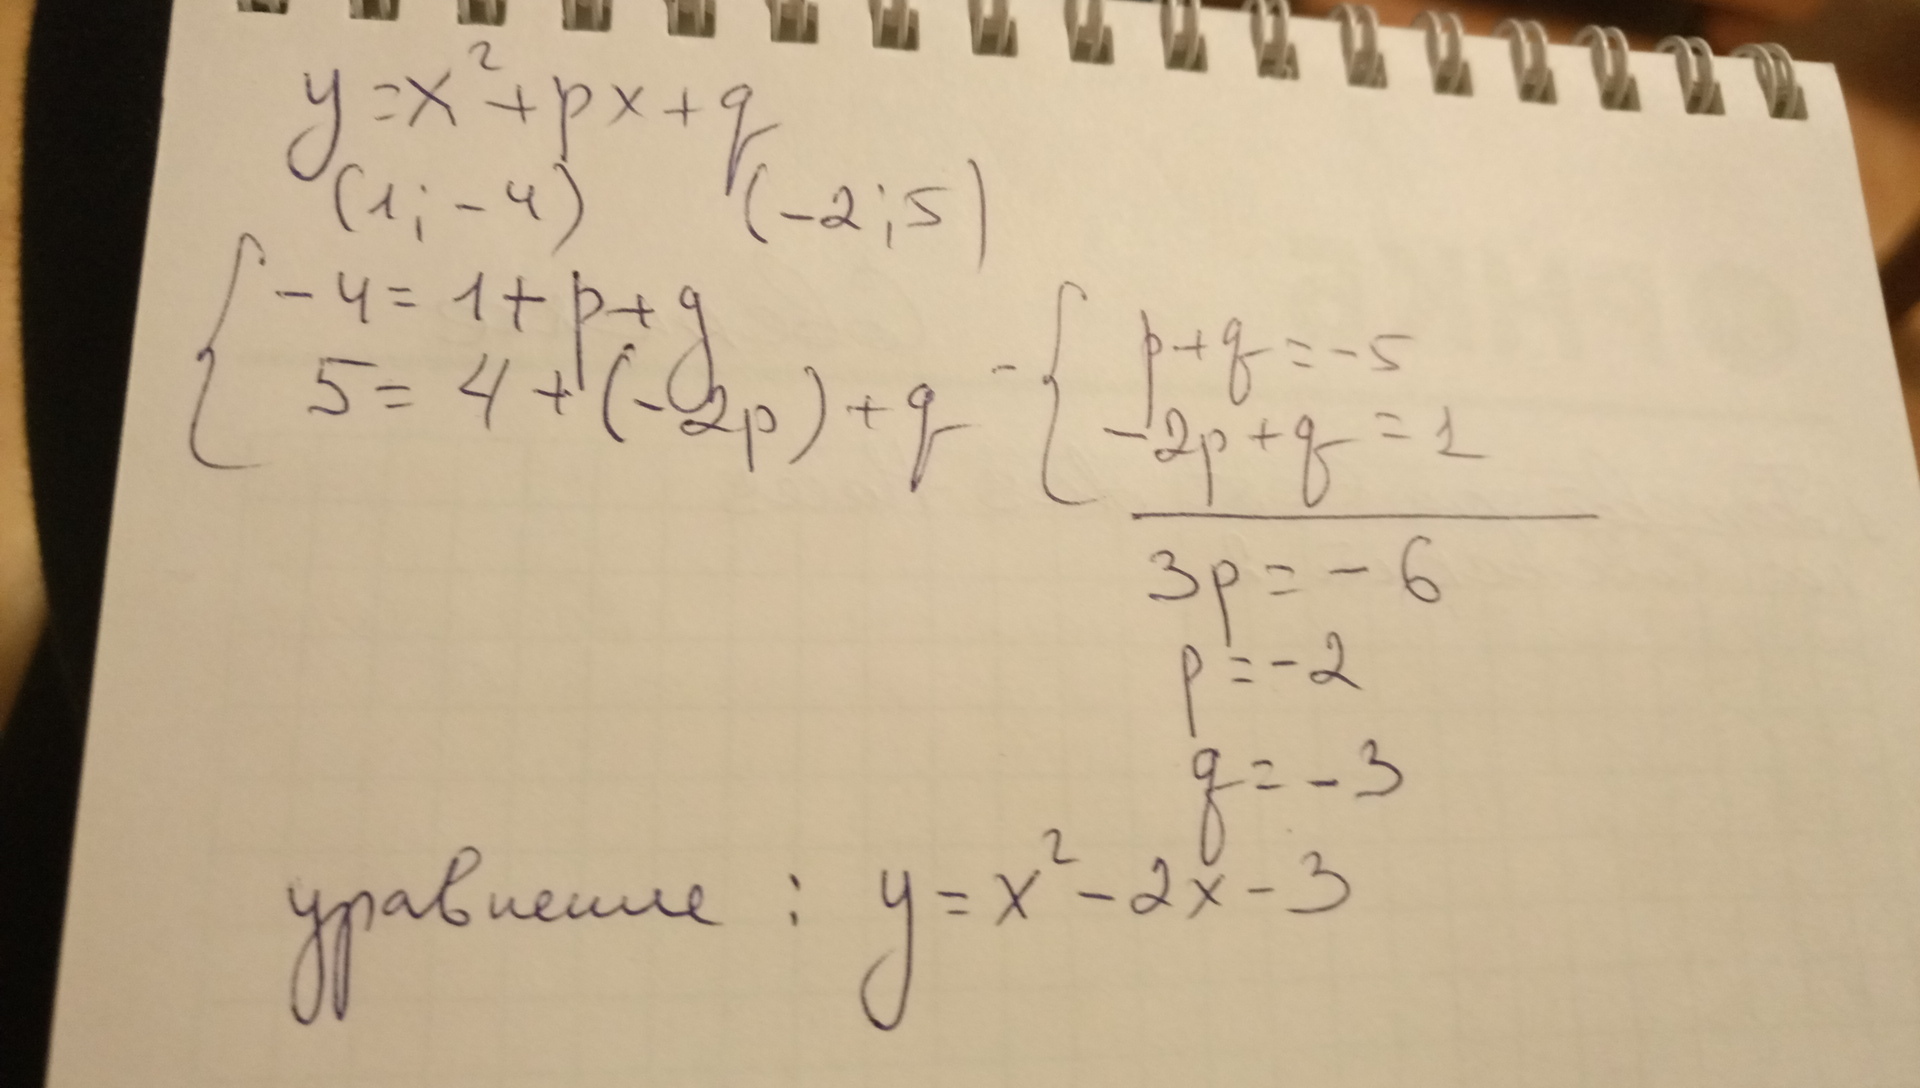 y = x² + px + q
(1; -4) (-2; 5)
-4 = 1 + p + q
5 = 4 + (-2p) + q
- p + q = -5
-2p + q = 1
3p = -6
p = -2
q = -3
уравнение : y = x² - 2x - 3